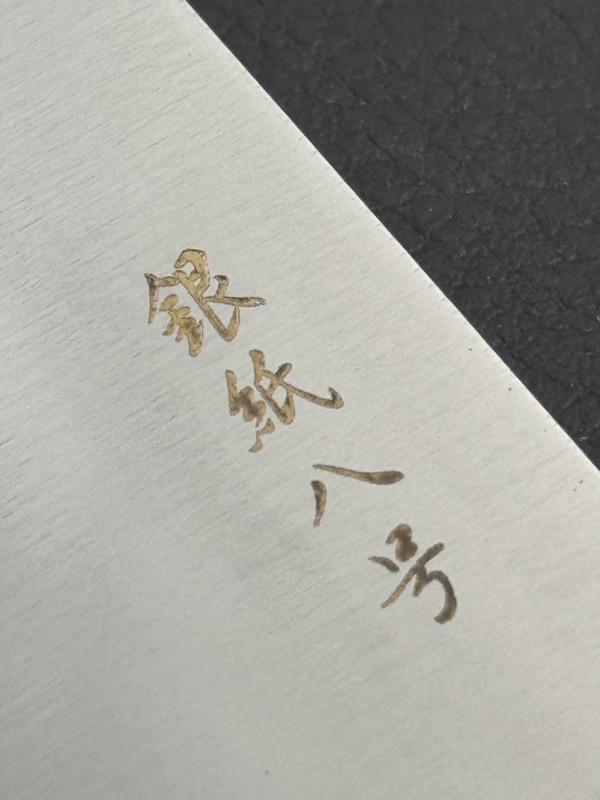 銀紙八号